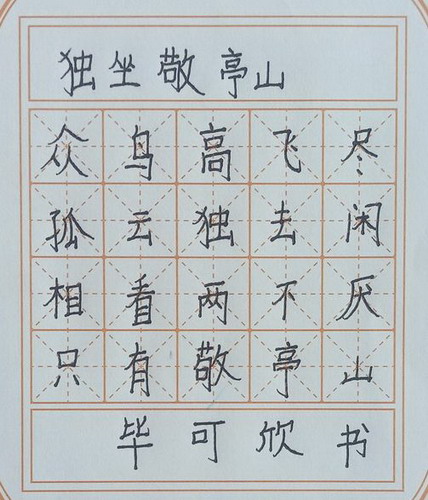 独坐敬亭山
众鸟高飞尽
孤云独去闲
相看两不厌
只有敬亭山
毕可欣书